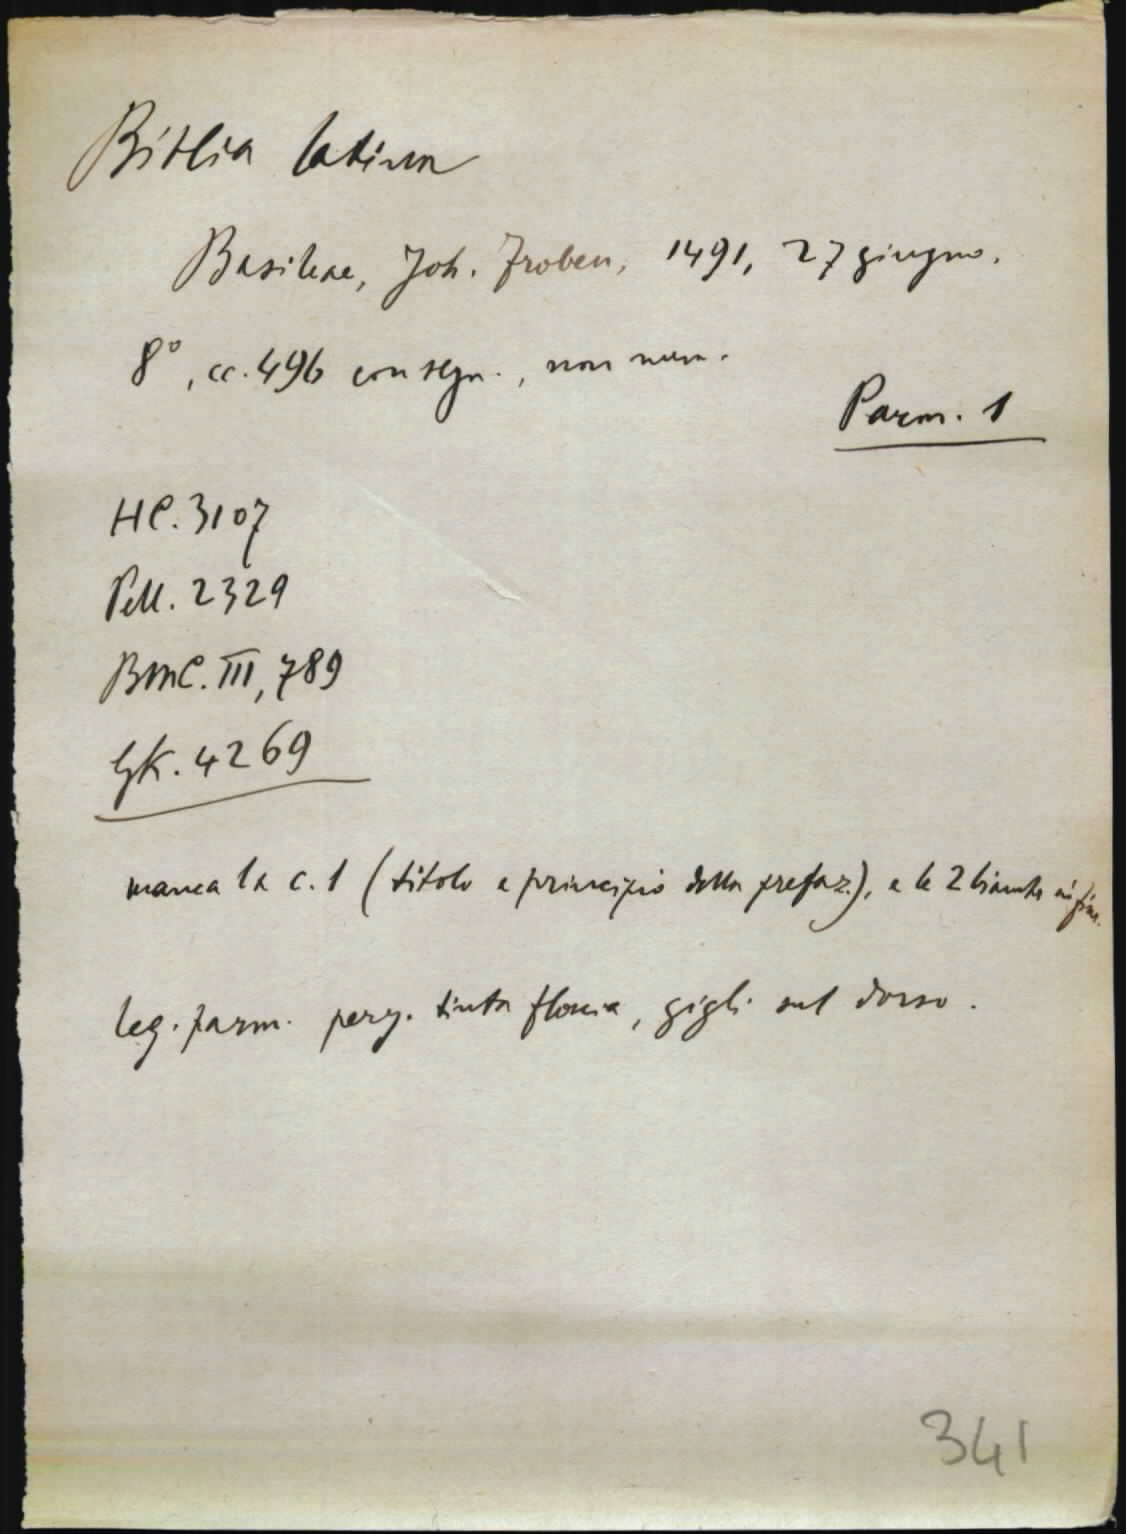 Biblia latina
Basileae, Joh. Froben, 1491, 27 giugno.
8°, cc. 496 con segn., non num.
Parm. 1
HC. 3107
Pell. 2329
BMC. III, 789
GK. 4269
manca la c. 1 (titolo e principio della prefaz.), e le 2 bianche in fine.
leg. parm. perg. tinta, gigli sul dorso.
341